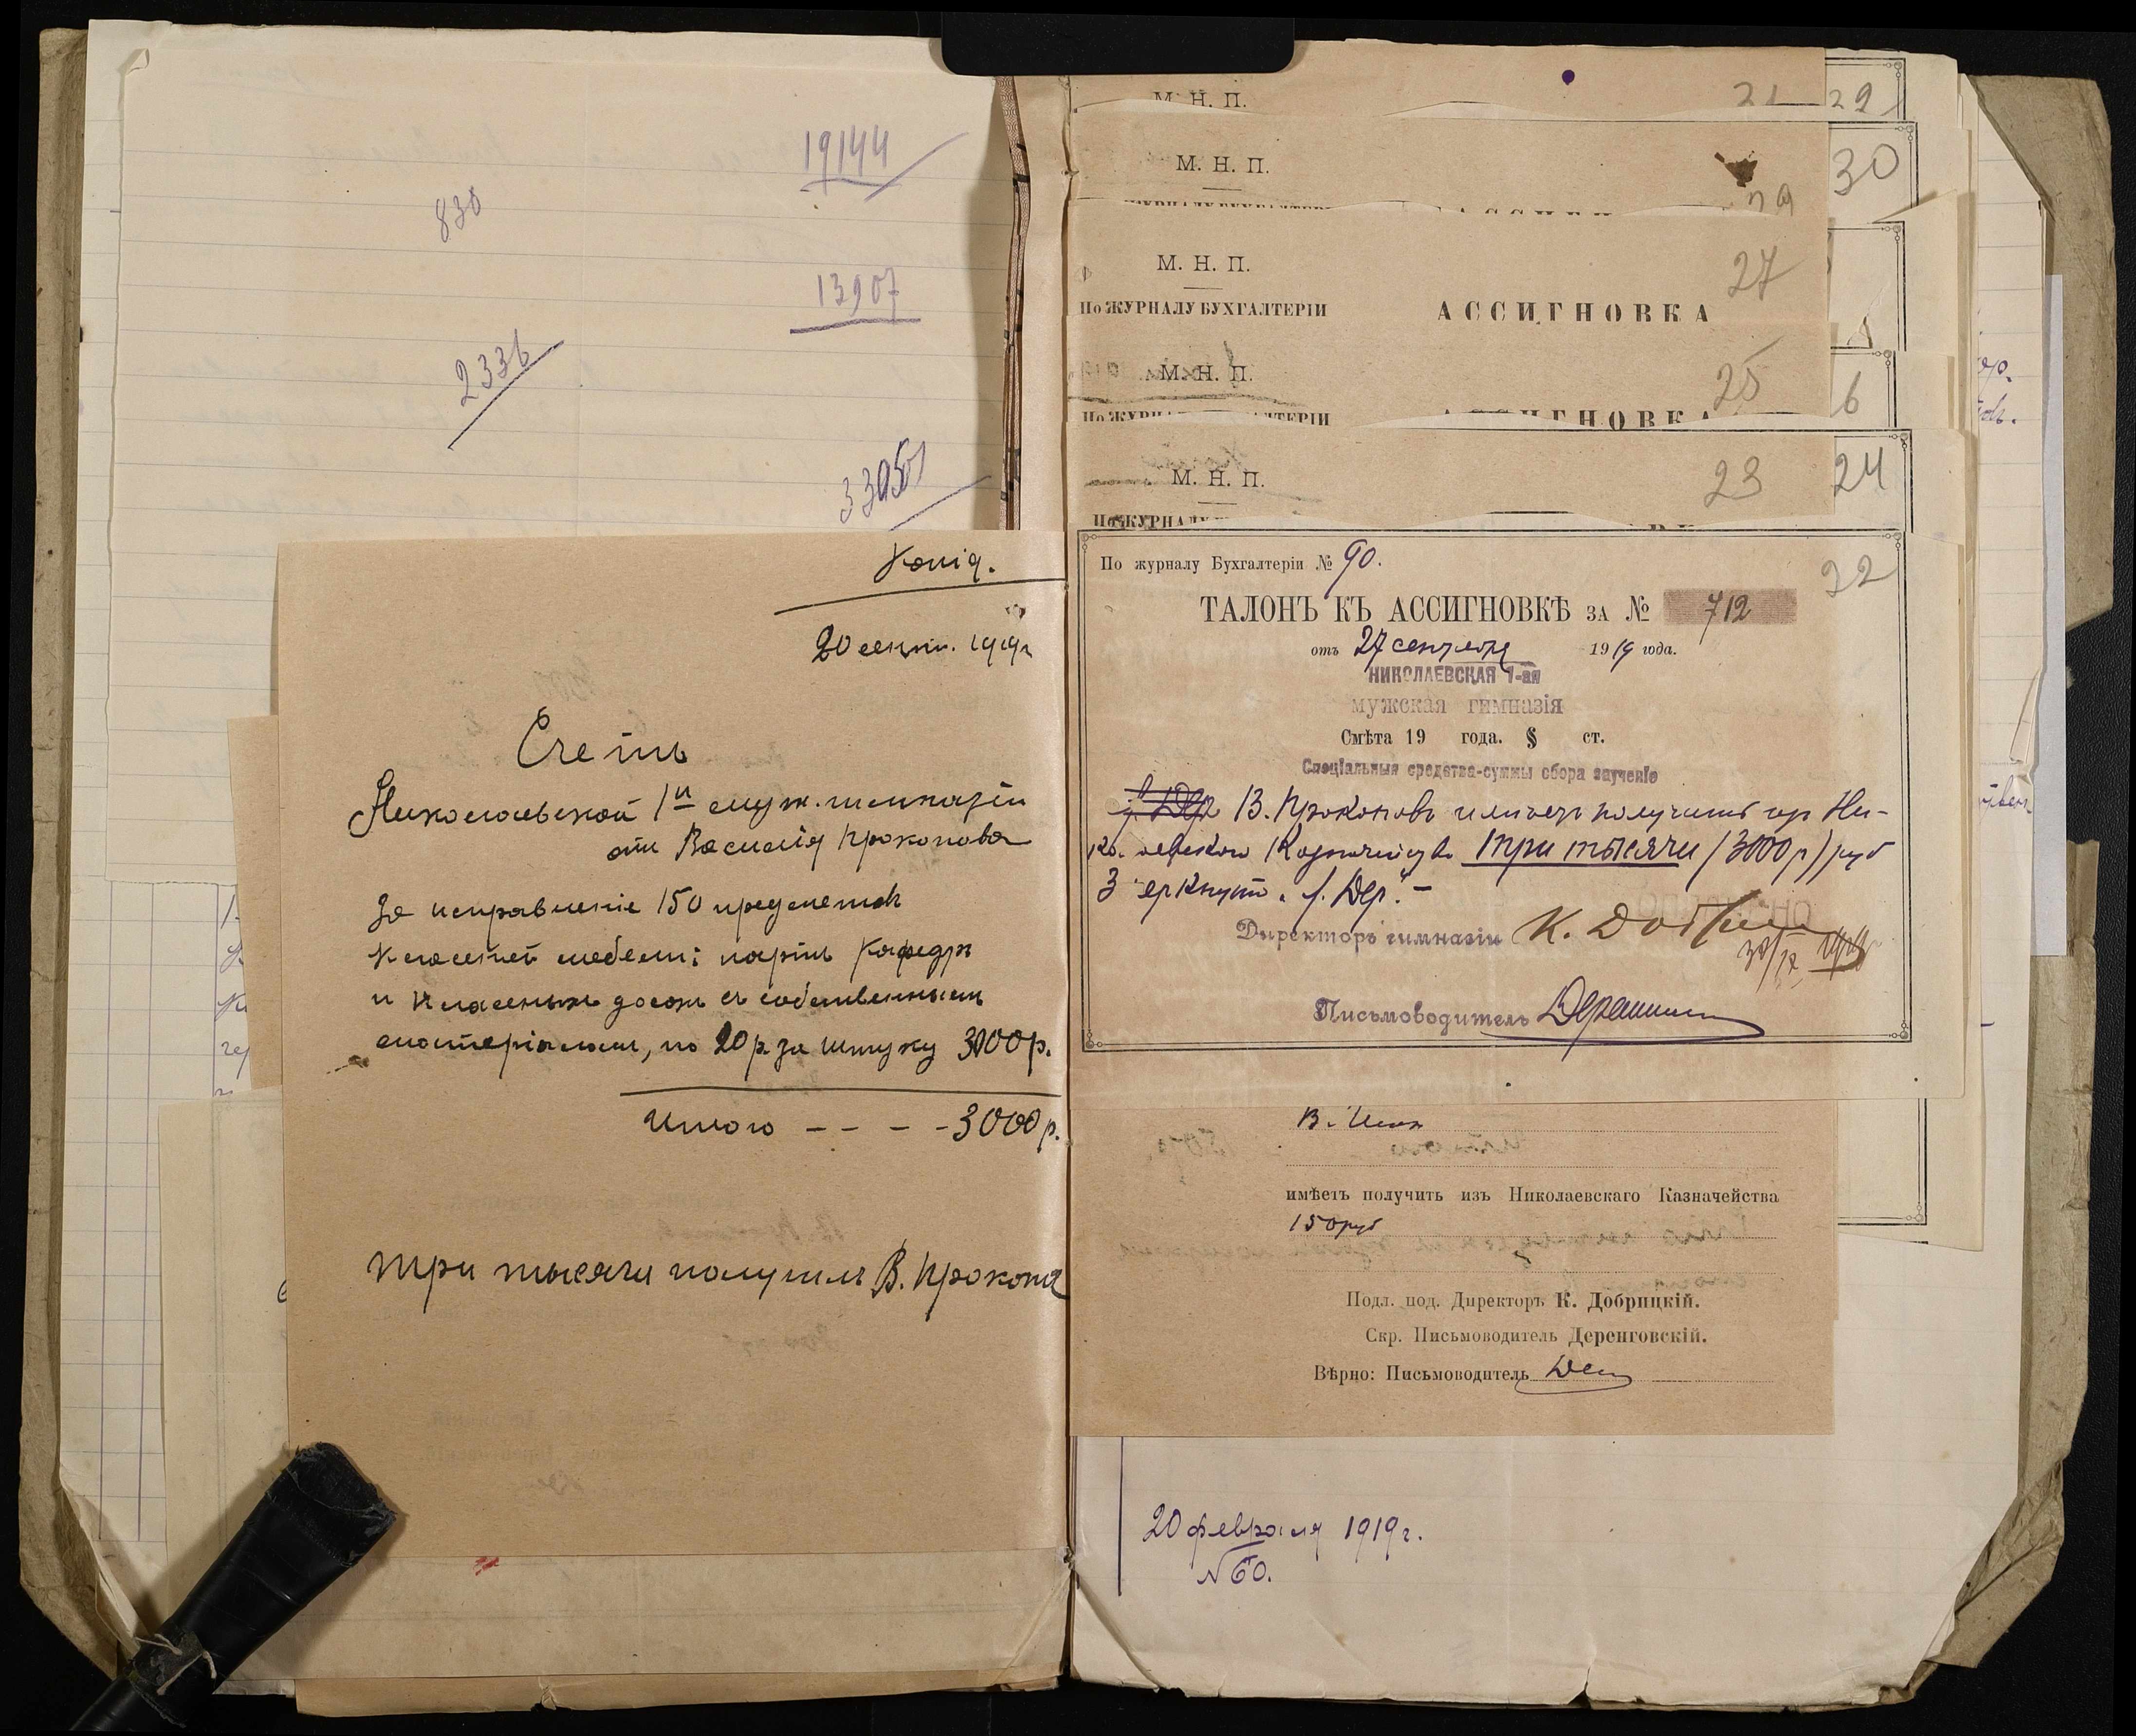 19144
830
13907
2336
33951
Копія.
20 сент. 1919 г
Счетъ
Николаевской 1й муж. гимназіи
отъ Василія Прокопова
За исправленіе 150 предметовъ
классной мебели: партъ кафедръ
и классныхъ досокъ съ собственнымъ
матеріаломъ, по 20 р за штуку 3000 р.
Итого - - - - 3000 р.
Три тысячи получилъ В. Прокопов
М. Н. П.
21
29
М. Н. П.
30
29
27
М. Н. П.
По ЖУРНАЛУ БУХГАЛТЕРІИ
АССИГНОВКА
25
М. Н. П.
6
АССИГНОВКА
23
24
М. Н. П.
По ЖУРНАЛУ
По журналу Бухгалтеріи № 90.
22
ТАЛОНЪ КЪ АССИГНОВКѢ ЗА № 712
отъ 27 сентября 1919 года.
НИКОЛАЕВСКАЯ 1-ая
мужская гимназія
Смѣта 19 года. § ст.
Спеціальныя средства-суммы сбора за ученіе
В. Прокоповъ имѣетъ получить изъ Ни-
колаевского Казначейства три тысячи (3000 р) руб
Директоръ гимназіи К. Доб
30/IX 1919
Письмоводитель
имѣетъ получить изъ Николаевскаго Казначейства
150 руб
Подл. под. Директоръ К. Добрицкій.
Скр. Письмоводитель Деренговскій.
Вѣрно: Письмоводитель
20 февраля 1919 г.
№ 60.